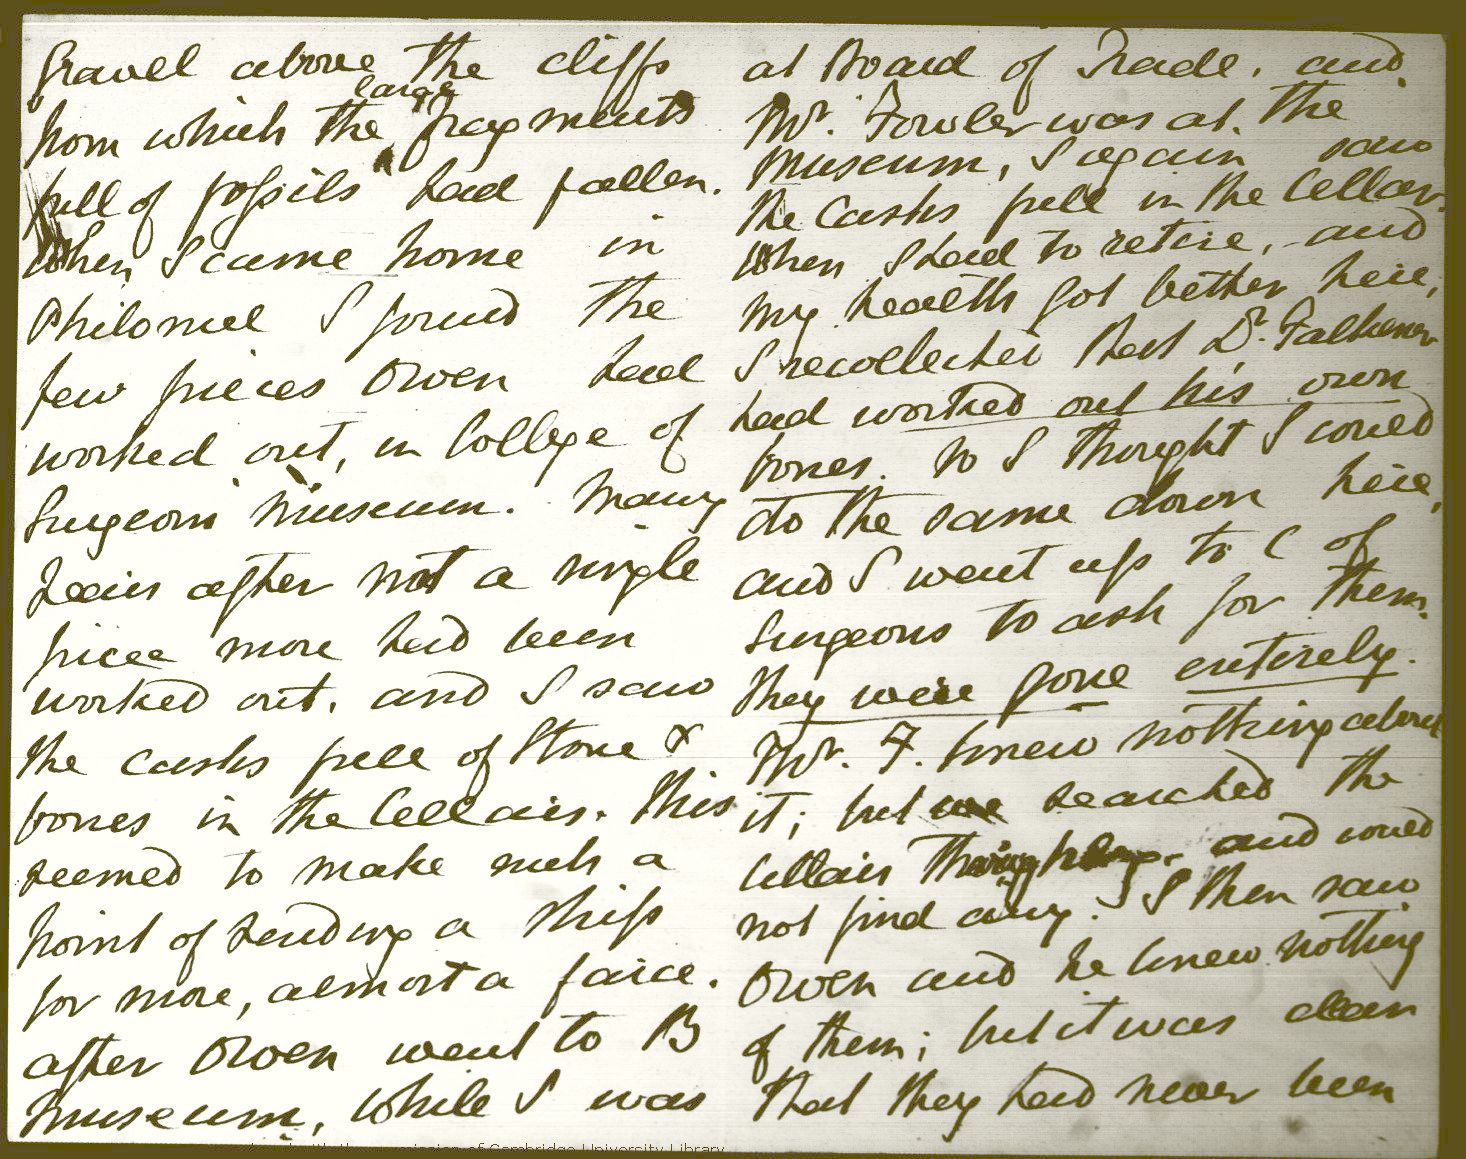 gravel above the cliffs
large
from which the fragments
full of fossils had fallen.
When I came home in
Philomel I found the
few pieces Owen had
worked out, in College of
Surgeons Museum. Many
years after not a single
piece more had been
worked out, and I saw
the casks full of stone &
bones in the Cellars. This
seemed to make such a
point of sending a ship
for more, almost a farce.
after Owen went to B
Museum, while I was
at Board of Trade, and
Mr. Fowler was at the
Museum, I again saw
the Casks full in the Cellar.
When I had to retire, and
my health got better here,
I recollected that Dr. Falkener
had worked out his own
bones. so I thought I could
do the same down here,
and I went up to C of
Surgeons to ask for them.
they were gone entirely.
Mr. F. knew nothing about
it; but we searched the
Cellars and could
not find any. I then saw
Owen and he knew nothing
of them; but it was clear
that they had never been
Cambridge University Library